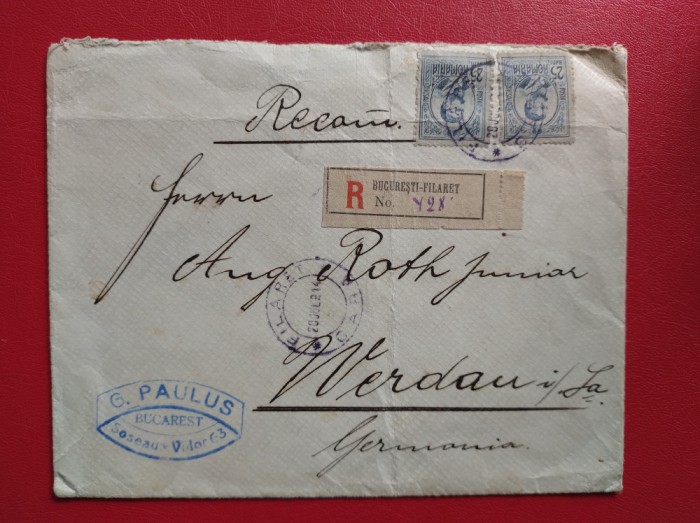 25 ROMANIA 25 ROMANIA
Recom̅.
R BUCUREŞTI-FILARET
No. 428
Herrn
Aug. Roth junior
FILARET GARA
20 JUL 914
Werdau i/Sa.
Germania.
G. PAULUS
BUCAREST
Soseaua Viilor 63